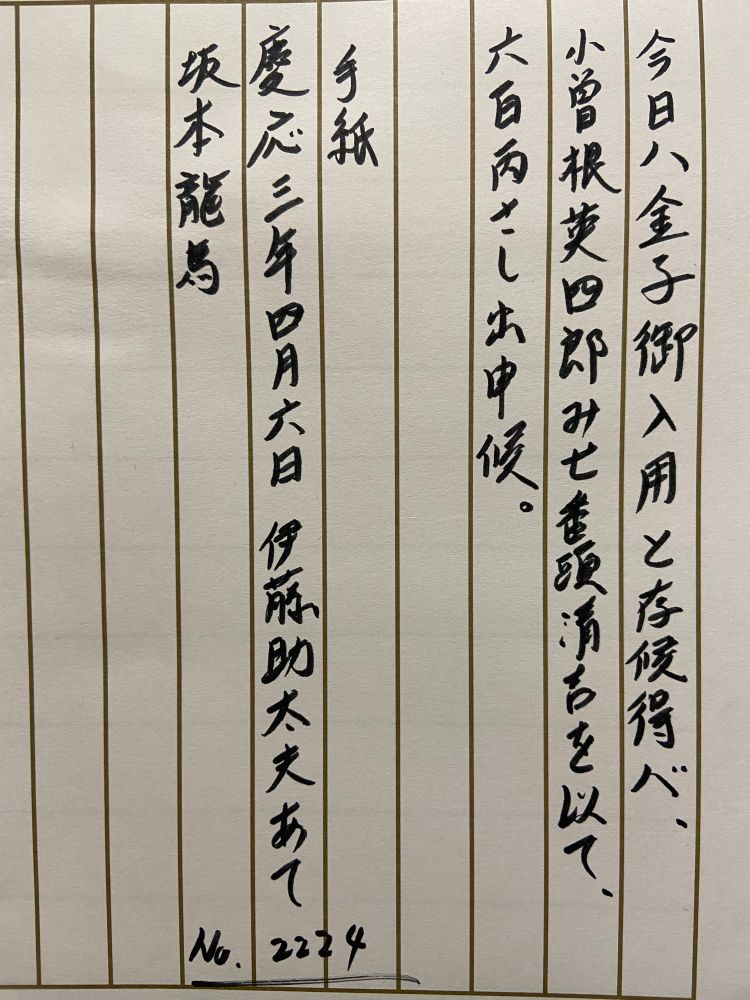 今日ハ金子御入用と存候得バ、
小曽根英四郎み七番頭清吉を以て、
六百両さし出申候。
手紙
慶応三年四月六日 伊藤助太夫あて
坂本龍馬
No. 2224